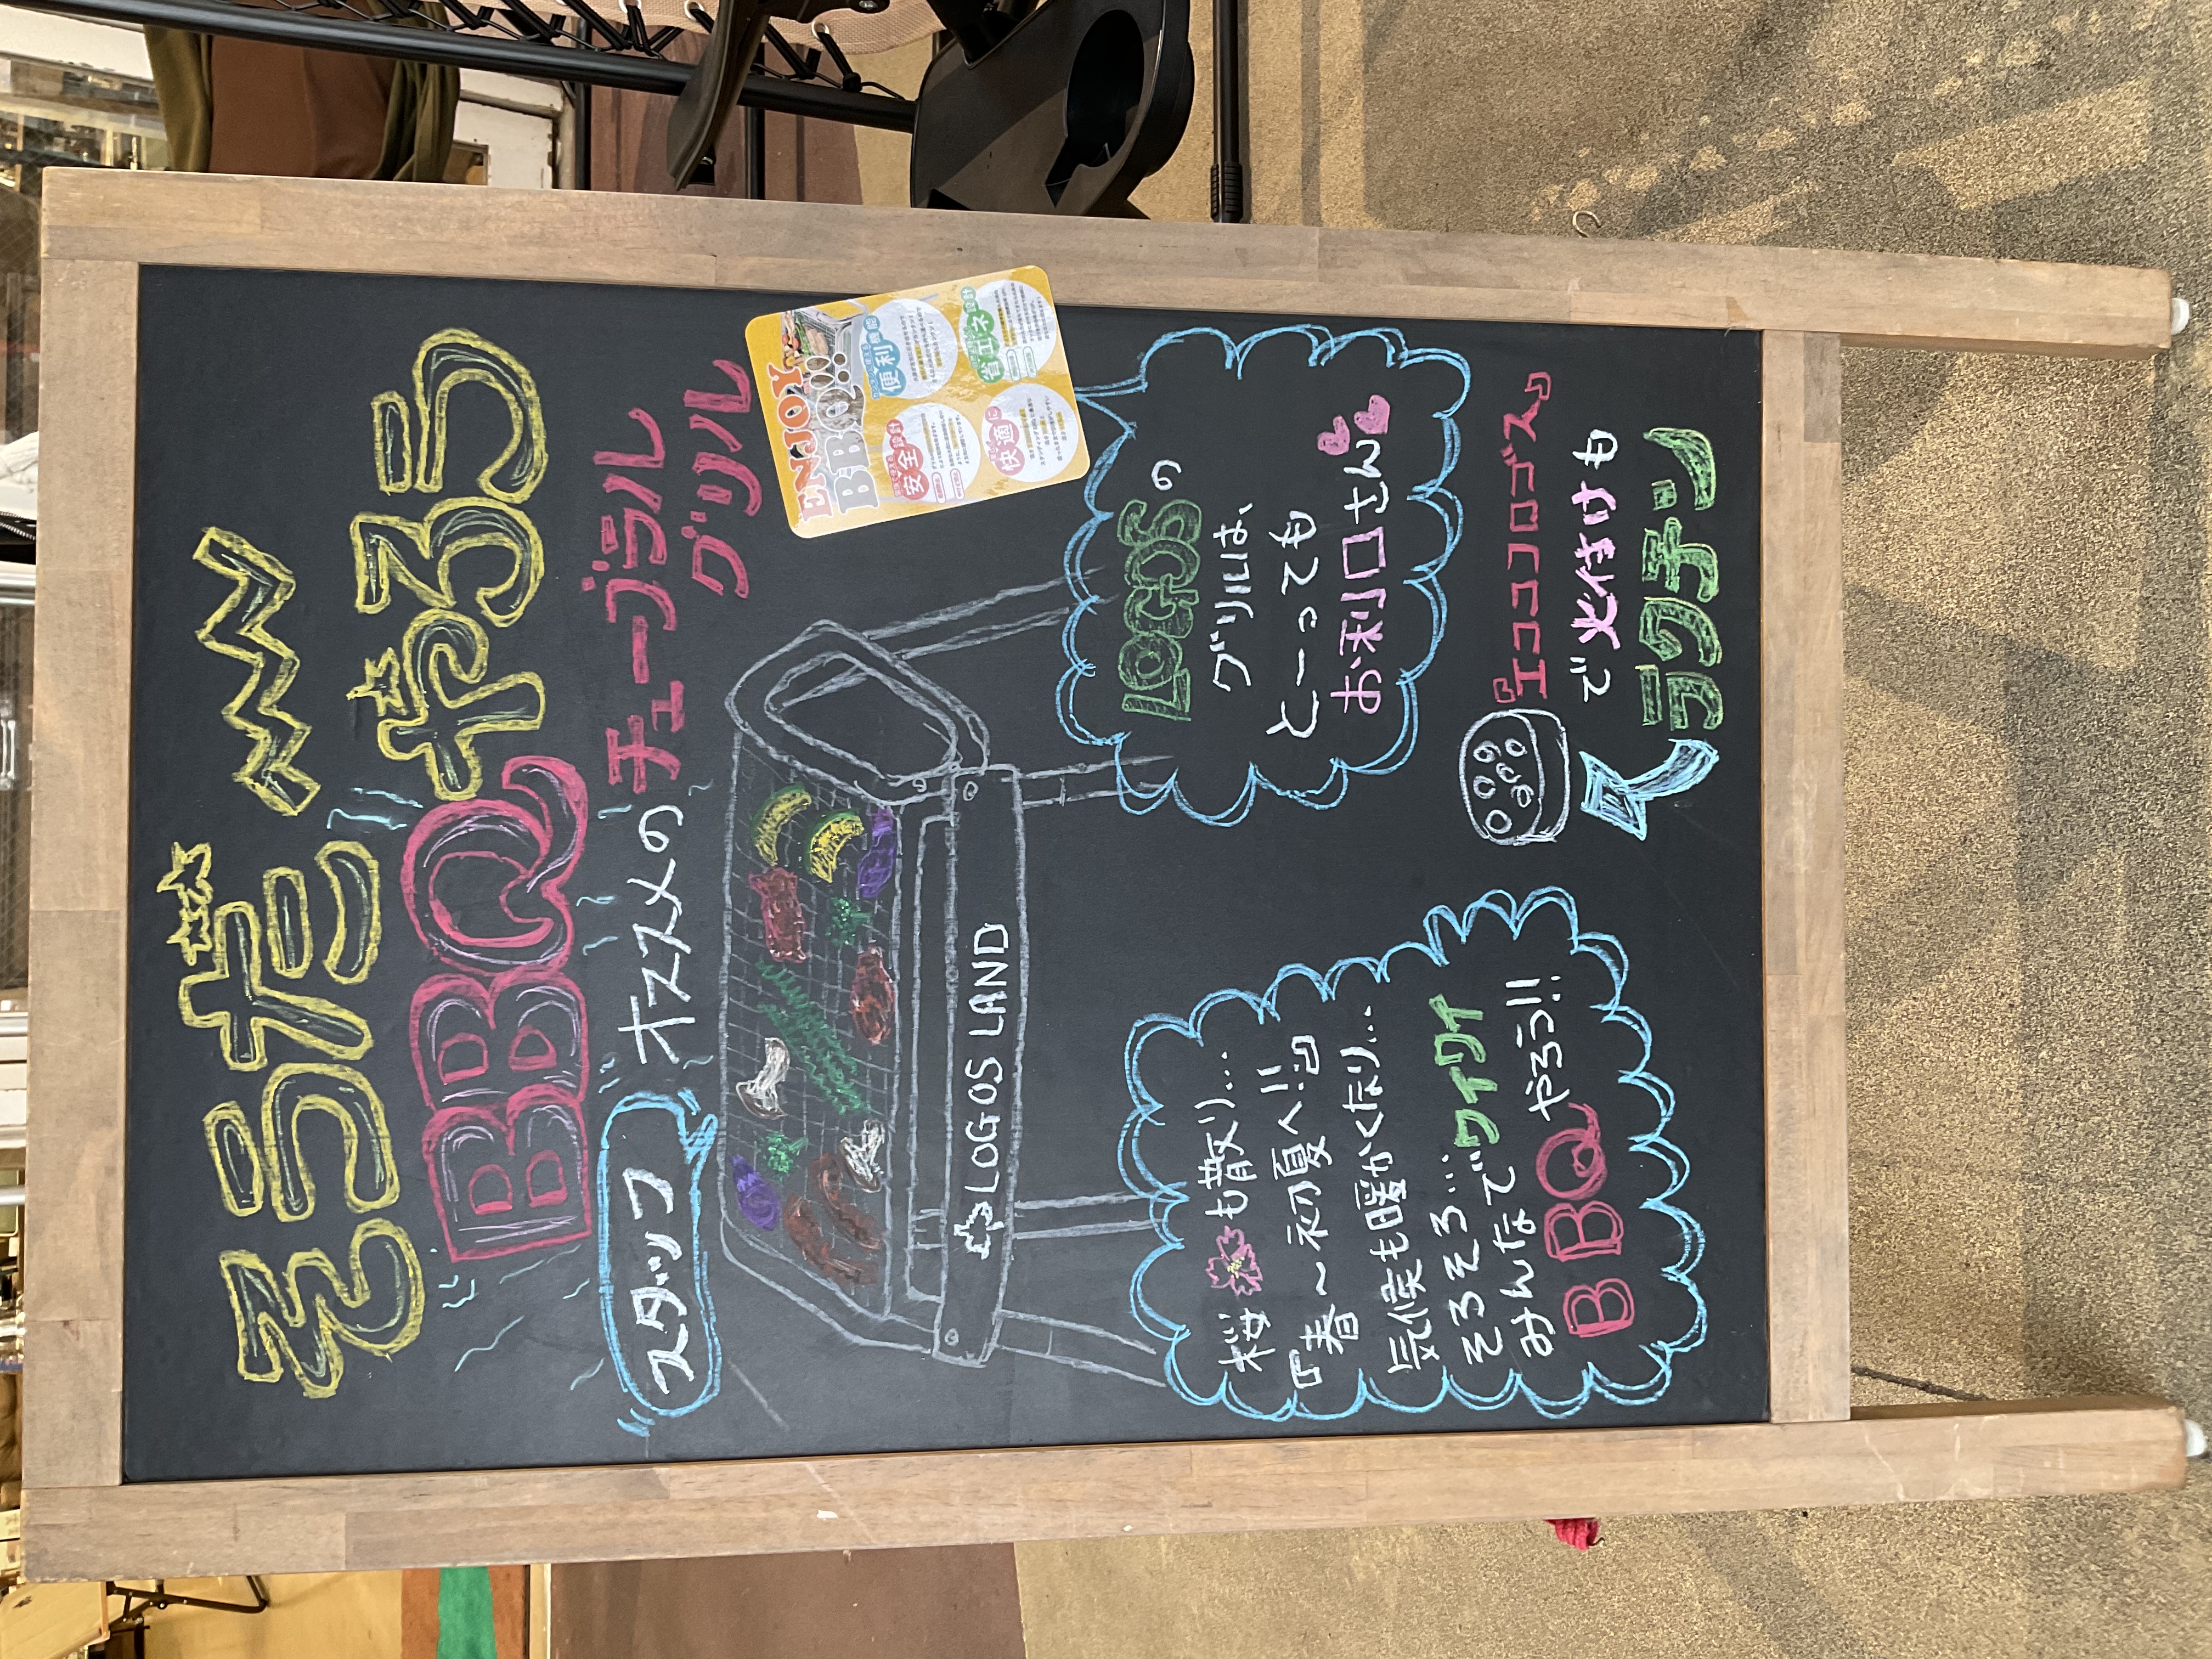 そうだ
BBQやろう
スタッフ オススメの チューブラル
グリル
ENJOY
BBQ!!
便利
安全設計
省エネ設計
快適に
LOGOS LAND
LOGOSの
グリルは、
とーっても
お利口さん
桜も散り…
『春～初夏へ!!』
気候も暖かくなり…
そろそろ…
みんなでワイワイ
BBQやろう!!
『エコココロゴス』
で火付けも
ラクチン